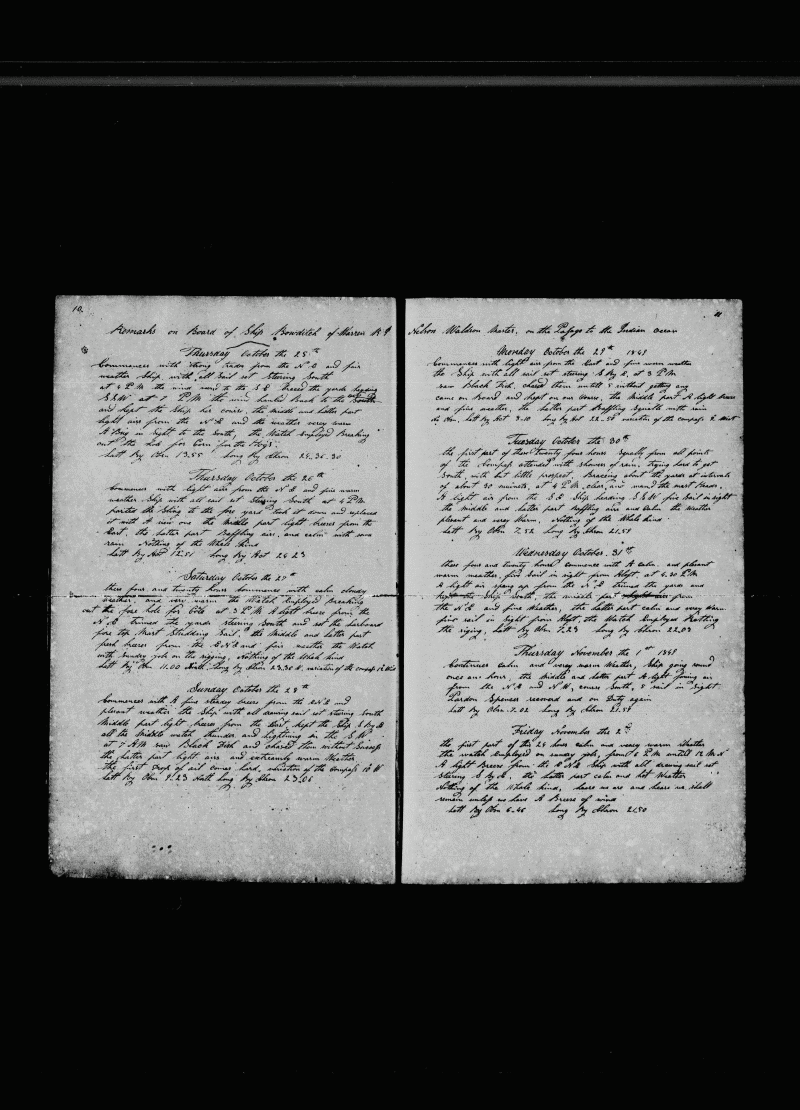 10.
Remarks on Board of Ship Bowditch of Warren R I
Thursday October the 25th
Commences with strong trades from the N.E and fine
weather Ship with all sail set Stering South
at 4 P.M the wind vered to the S E braced the yards heading
S.S.W. at 7 P.M the wind hauled Back to the
and kept the Ship her corse, the middle and latter part
light airs from the N E and the weather very warm
A Brig in sight to the South, the Watch employed Breaking
out the for Corn for the Hogs
Latt By Obn 13.55 Long By Chron 25.36.30
Thursday October the 26th
Commences with light airs from the N E and fine warm
weather Ship with all sail set Stering South at 4 P.M
parted the Sling to the fore yard took it down and replaced
it with A new one the Middle part light breezes from the
East, the latter part Baffling airs and calm with some
rain Nothing of the Whale kind
Latt By Act 12.51 Long By Act 24.23
Saturday October the 27th
these four and twenty hours Commences with calm cloudy
weather, and very warm the Watch Employed Breaking
out the fore hole for at 3 P.M A light breeze from the
N.E trimed the yards stering South and set the larboard
fore top Mast Studding Sail, the Middle and latter part
fresh breezes from the E N E and fine weather the Watch
with Sundry job on the rigging, Nothing of the Whale kind
Latt By Obn 11.00 North Long By Chron 23.30 W, variation of the compass 12 West
Sunday October the 28th
Commences with A fine steady breeze from the ENE and
pleasant weather the Ship with all drawing sail set stering South
Middle part light breezes from the East, kept the Ship S by E
all the Middle watch thunder and lightening in the S.W.
at 7 A.M saw Black Fish and chased them without Success
the latter part light airs and extreamly warm Weather
the first drop of oil comes hard, variation of the Compass 12 W
Latt By Obn 9.23 North Long By Chron 23.05
11
Nelson Waldron Master, on the Passage to the Indian Ocean
Monday October the 29th 1849
Commences with light airs from the East and fine warm weather
the Ship with all sail set stering S By E, at 3 P.M
saw Black Fish, chased them untill 5 without getting any
came on Board and kept on our Course, the Middle part A light breeze
and fine weather, the latter part Baffling Squalls with rain
Latt By Act 8.10 Long By Act 22.54 variation of the compass West
Tuesday October the 30th
the first part of these twenty four hours Squally from all points
of the Compass attended with showers of rain, trying hard to get
South, with but little prospect, Bracing about the yards at intervals
of about 30 minuets, at 4 P.M. clear, and
A light air from the S E Ship heading S.S.W five Sail in sight
the Middle and latter part Baffling airs and calm the weather
plesent and very Warm. Nothing of the Whale kind
Latt By Obn 7.52 Long By Chron 21.59
Wednesday October 31st
these four and twenty hours commence with A calm and plesant
warm weather, five Sail in sight from Aloft, at 4.30 P.M
A light air sprang up from the N.E trimed the yards and
kept the Ship South, the middle part light air from
the N.E and fine Weather, the latter part calm and very Warm
five sail in sight from Aloft, the Watch Employed Ratling
the riging, Latt By Obn 7.23 Long By Chron 22.03
Thursday November the 1st 1849
Continues calm and very warm Weather, Ship going round
once an hour, the Middle and latter part A light from
from the N.E and N.W, course South, 5 sail in Sight
Pardon Spenser recoverd and on Duty again
Latt By Obn 7.02 Long By Chron 21.59
Friday November the 2d
the first part of this 24 hours calm and verey warm Weather
the watch Employed on sundry jobs, from 6 P.M untill 12 M.N
A light Breeze from the E.N.E Ship with all drawing sail set
Stering S By E, the latter part calm and hot Weather
Nothing of the Whale kind, heare we are and heare we shall
remain unless we have A Breeze of wind
Latt By Obn 6.46 Long By Chron 21.50